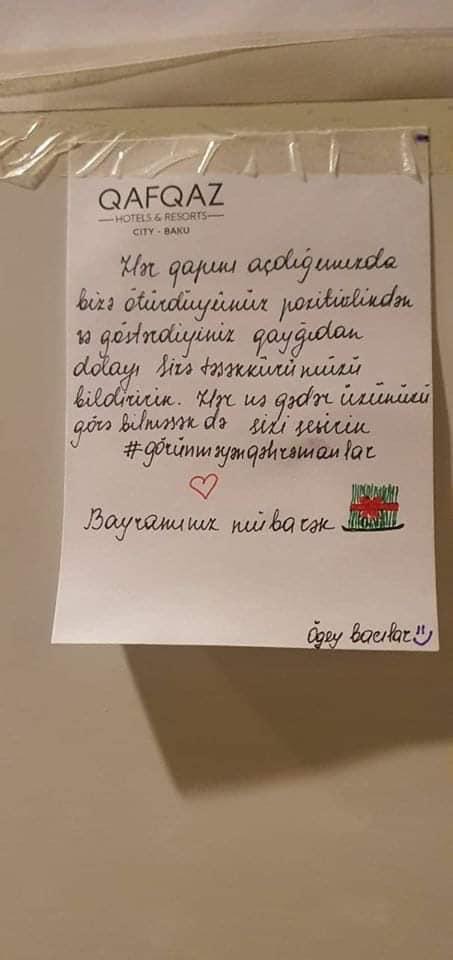 QAFQAZ
HOTELS & RESORTS
CITY - BAKU
Hər qapını açdığımızda
bizə ötürdüyünüz pozitivlikdən
və göstərdiyiniz qayğıdan
dolayı sizə təşəkkürümüzü
bildiririk. Hər nə qədər üzünüzü
görə bilməsək də sizi sevirik
#görünməyənqəhrəmanlar
Bayramınız mübarək
Ögey bacılar